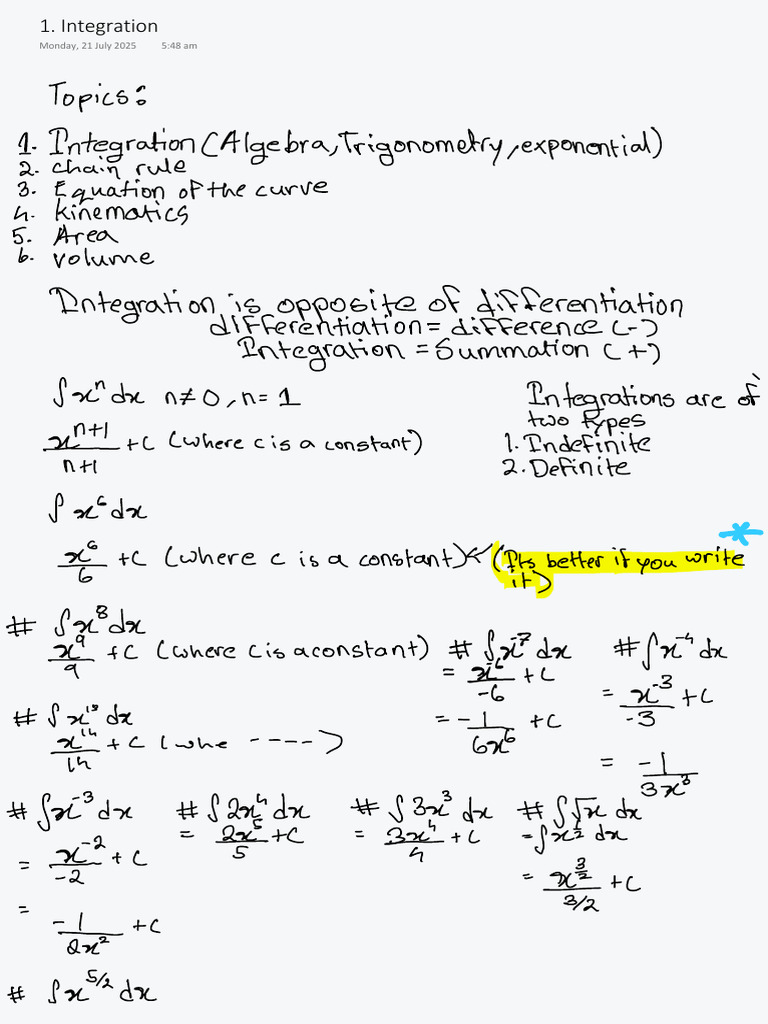 1. Integration
Monday, 21 July 2025 5:48 am
Topics:
1. Integration (Algebra, Trigonometry, exponential)
2. chain rule
3. Equation of the curve
4. kinematics
5. Area
6. volume
Integration is opposite of differentiation
differentiation = difference (-)
Integration = Summation (+)
∫xⁿ dx n≠0, n=1
x^(n+1)/(n+1) + c (where c is a constant)
Integrations are of
two types
1. Indefinite
2. Definite
∫ x⁶ dx
x⁶/6 + c (where c is a constant) ← (Its better if you write
it)
# ∫x⁸ dx
x⁹/9 + c (where c is a constant)
# ∫x⁻⁷ dx
= x⁻⁶/-6 + c
= -1/(6x⁶) + c
# ∫x⁻⁴ dx
= x⁻³/-3 + c
= -1/(3x³)
# ∫x¹³ dx
x¹⁴/14 + c (whe ----)
# ∫x⁻³ dx
= x⁻²/-2 + c
=
-1/(2x²) + c
# ∫2x⁴ dx
= 2x⁵/5 + c
# ∫3x³ dx
= 3x⁴/4 + c
# ∫√x dx
= ∫x^(1/2) dx
= x^(3/2)/(3/2) + c
# ∫x^(5/2) dx